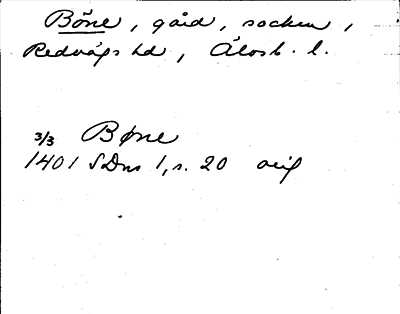 Böne, gård, socken,
Redvägs hd, Älvsb. l.
3/3 Bøne
1401 SDns 1, s. 20 orig